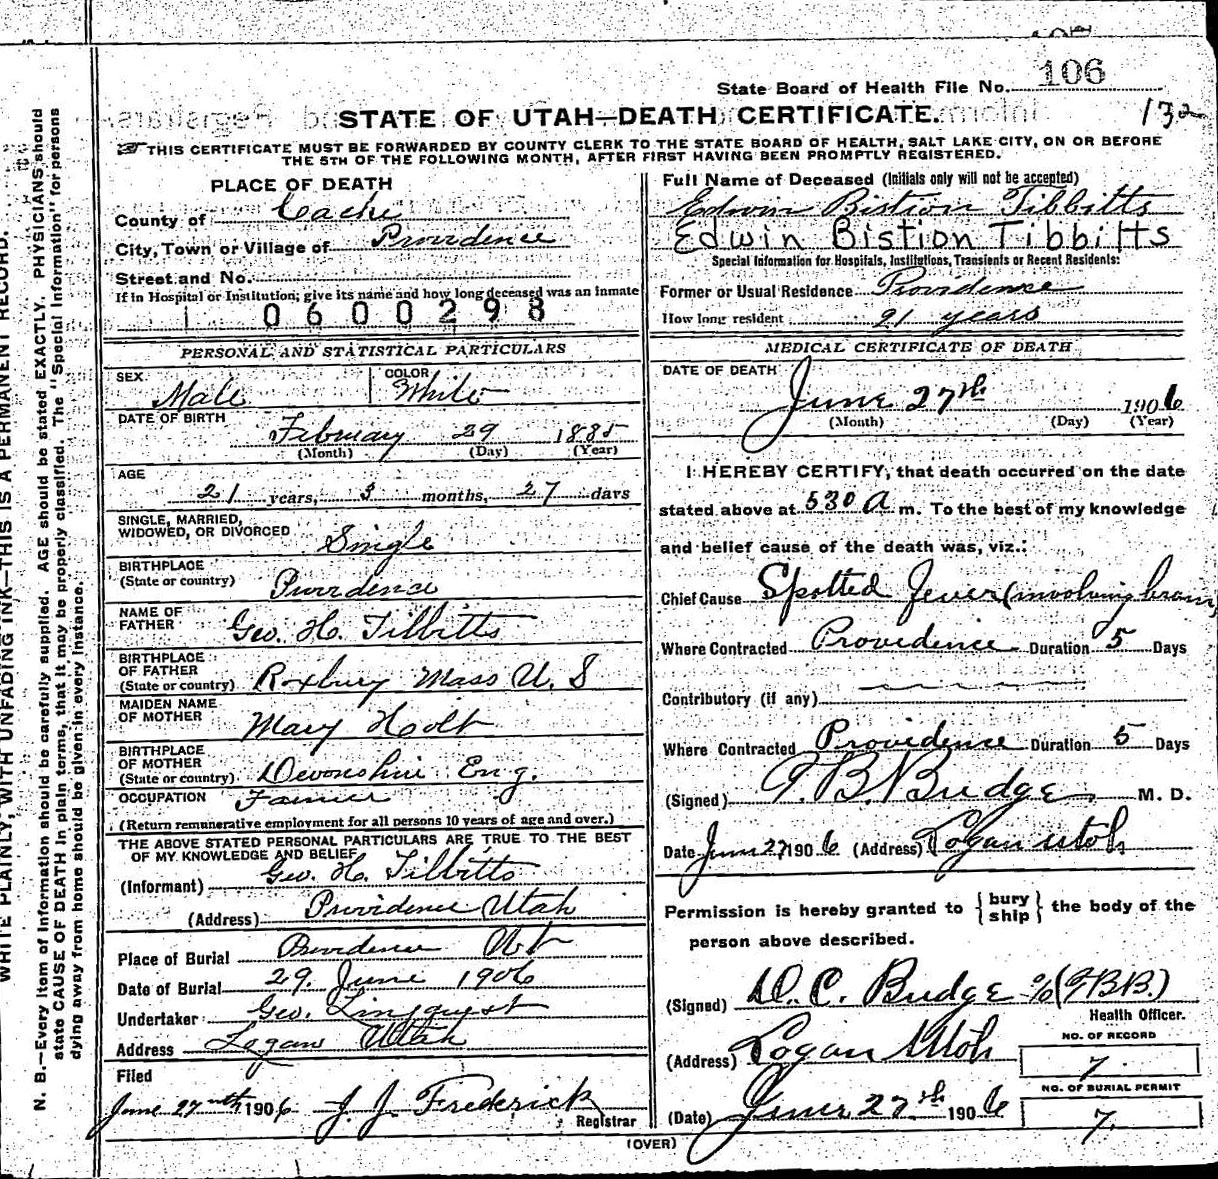 State Board of Health File No. 106
132
STATE OF UTAH—DEATH CERTIFICATE.
THIS CERTIFICATE MUST BE FORWARDED BY COUNTY CLERK TO THE STATE BOARD OF HEALTH, SALT LAKE CITY, ON OR BEFORE
THE 5TH OF THE FOLLOWING MONTH, AFTER FIRST HAVING BEEN PROMPTLY REGISTERED.
PLACE OF DEATH
County of Cache
City, Town or Village of Providence
Street and No.
If in Hospital or Institution, give its name and how long deceased was an inmate
0600298
PERSONAL AND STATISTICAL PARTICULARS
SEX Male COLOR White
DATE OF BIRTH
February 29 1885
(Month) (Day) (Year)
AGE
21 years, 3 months, 27 days
SINGLE, MARRIED,
WIDOWED, OR DIVORCED Single
BIRTHPLACE
(State or country) Providence
NAME OF
FATHER Geo. H. Tibbitts
BIRTHPLACE
OF FATHER
(State or country) Roxbury Mass U. S
MAIDEN NAME
OF MOTHER Mary Holt
BIRTHPLACE
OF MOTHER
(State or country) Devonshire Eng.
OCCUPATION Farmer
(Return remunerative employment for all persons 10 years of age and over.)
THE ABOVE STATED PERSONAL PARTICULARS ARE TRUE TO THE BEST
OF MY KNOWLEDGE AND BELIEF
(Informant) Geo. H. Tibbitts
(Address) Providence Utah
Place of Burial Providence Ut
Date of Burial 29. June 1906
Undertaker Geo. Linquist
Address Logan Utah
Filed
June 27 1906 J. J. Frederick
Registrar
Full Name of Deceased (Initials only will not be accepted)
Edwin Bistion Tibbitts
Edwin Bistion Tibbitts
Special Information for Hospitals, Institutions, Transients or Recent Residents:
Former or Usual Residence Providence
How long resident 21 years
MEDICAL CERTIFICATE OF DEATH
DATE OF DEATH
June 27th 1906
(Month) (Day) (Year)
I HEREBY CERTIFY, that death occurred on the date
stated above at 530 a m. To the best of my knowledge
and belief cause of the death was, viz.:
Chief Cause Spotted Fever (involving brain)
Where Contracted Providence Duration 5 Days
Contributory (if any)
Where Contracted Providence Duration 5 Days
(Signed) T. B. Budge M. D.
Date June 27 1906 (Address) Logan Utah
Permission is hereby granted to {bury
ship} the body of the
person above described.
(Signed) D. C. Budge % (TBB.)
Health Officer.
(Address) Logan Utah
NO. OF RECORD
7.
NO. OF BURIAL PERMIT
7.
(Date) June 27th 1906
(OVER)
WRITE PLAINLY, WITH UNFADING INK—THIS IS A PERMANENT RECORD.
N. B.—Every item of information should be carefully supplied. AGE should be stated EXACTLY. PHYSICIANS should
state CAUSE OF DEATH in plain terms, that it may be properly classified. The "Special Information" for persons
dying away from home should be given in every instance.